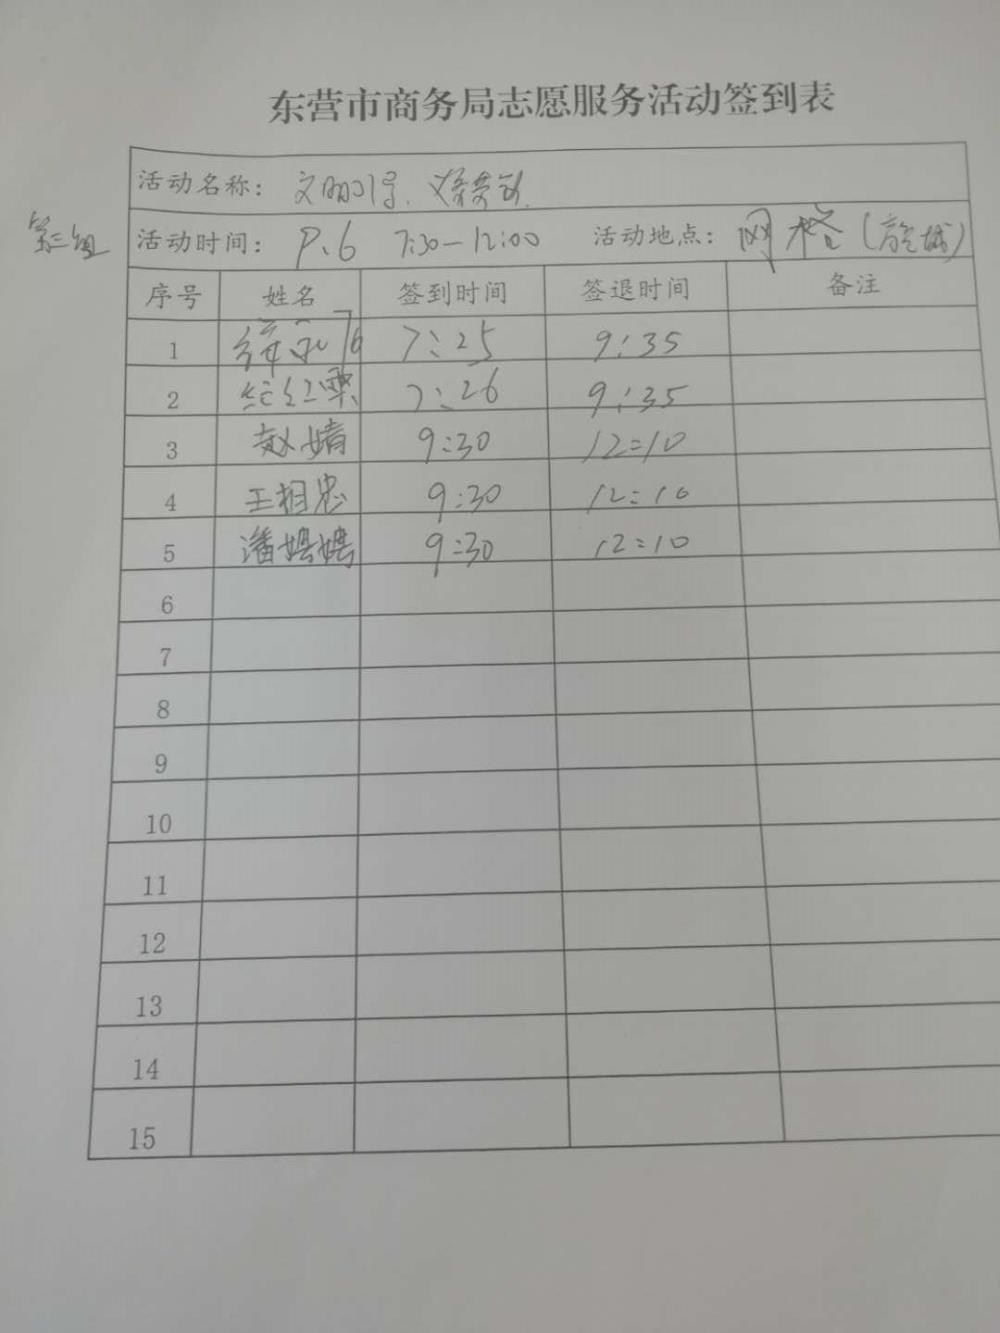 东营市商务局志愿服务活动签到表
活动名称: 文明引导.
第三组
活动时间: 9.6 7:30-12:00 活动地点: 网格( )
序号 姓名 签到时间 签退时间 备注
1 7:25 9:35
2 7:26 9:35
3 赵婧 9:30 12:10
4 王相忠 9:30 12:10
5 潘娉娉 9:30 12:10
6
7
8
9
10
11
12
13
14
15